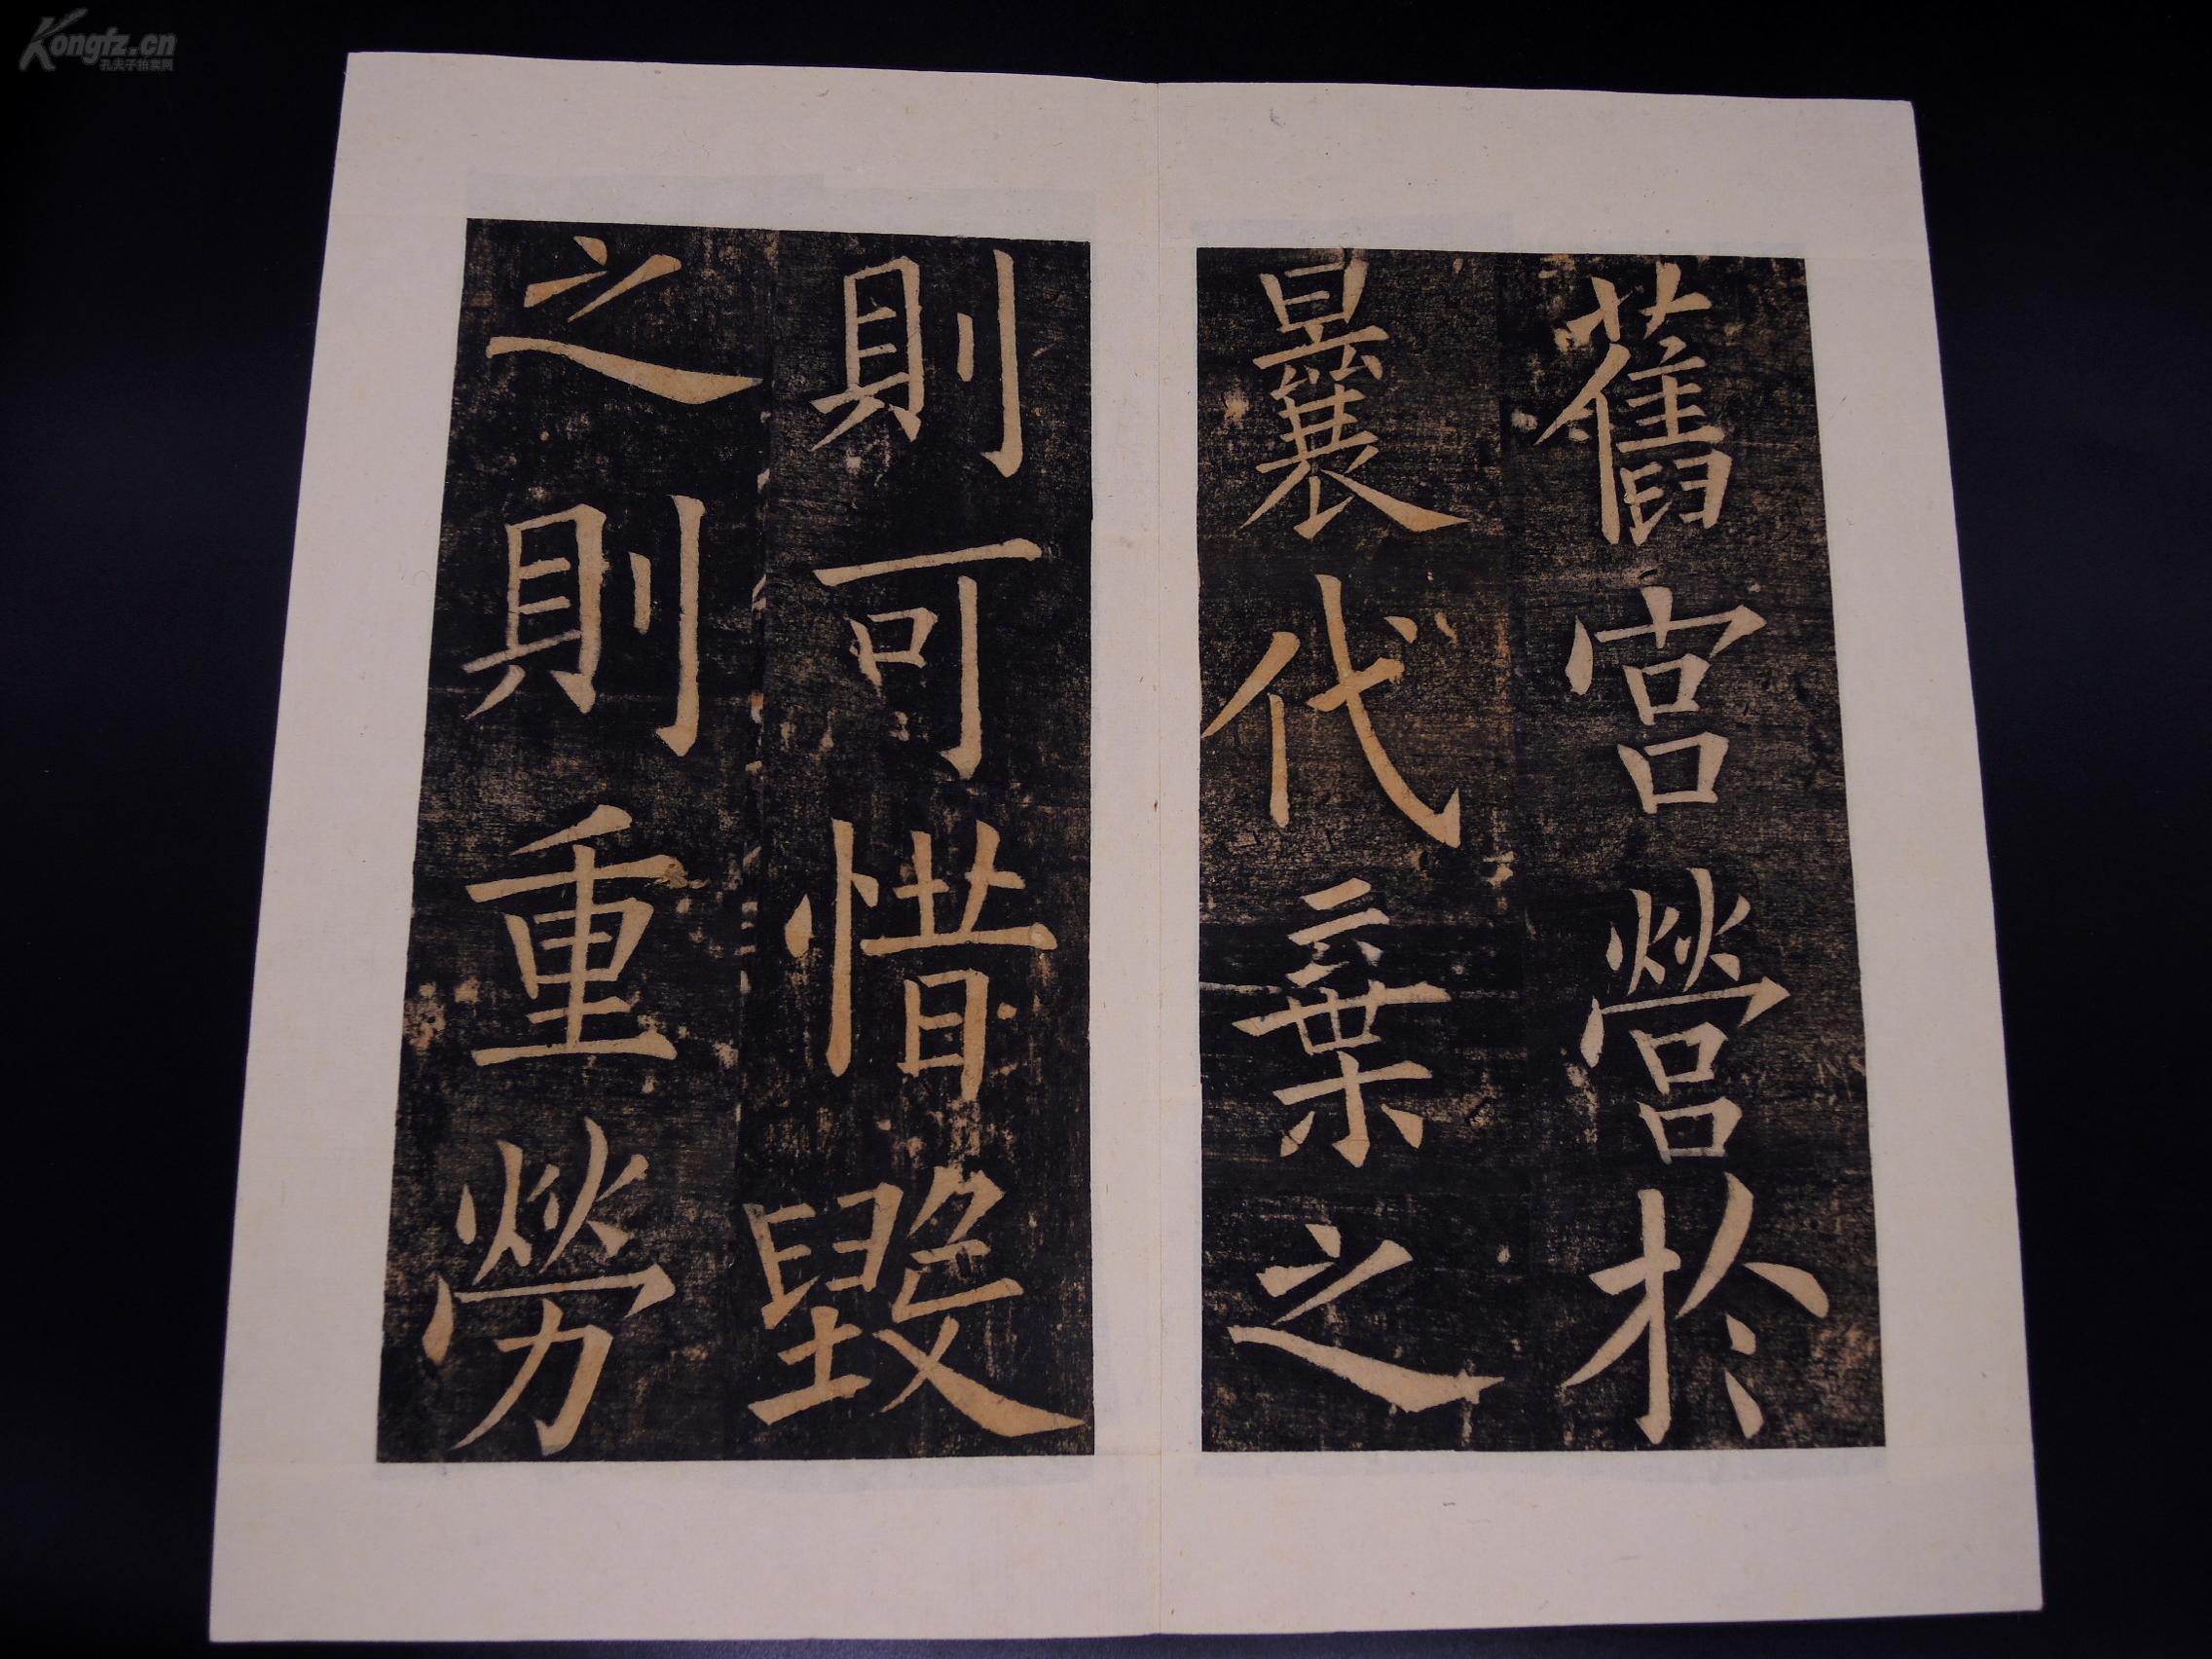 舊宮營於
曩代棄之
則可惜毀
之則重勞
Kongfz.cn
孔夫子拍卖网